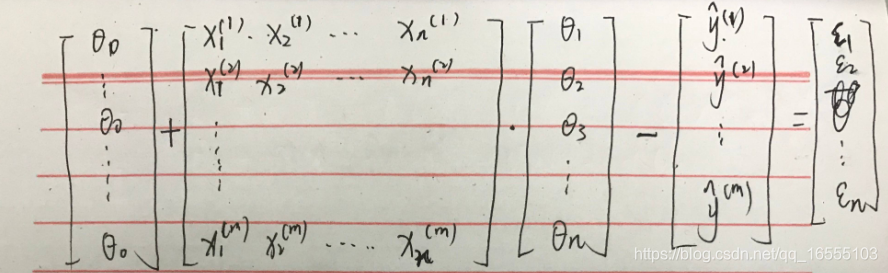 [θ₀ ⋮ θ₀ ⋮ θ₀] + [x₁⁽¹⁾ · x₂⁽¹⁾ ⋯ xₙ⁽¹⁾ ; x₁⁽²⁾ x₂⁽²⁾ ⋯ xₙ⁽²⁾ ; ⋮ ; x₁⁽ᵐ⁾ x₂⁽ᵐ⁾ ⋯ xₙ⁽ᵐ⁾] · [θ₁ θ₂ θ₃ ⋮ θₙ] − [ŷ⁽¹⁾ ŷ⁽²⁾ ⋮ ŷ⁽ᵐ⁾] = [ε₁ ε₂ ⋮ εₙ]
https://blog.csdn.net/qq_16555103